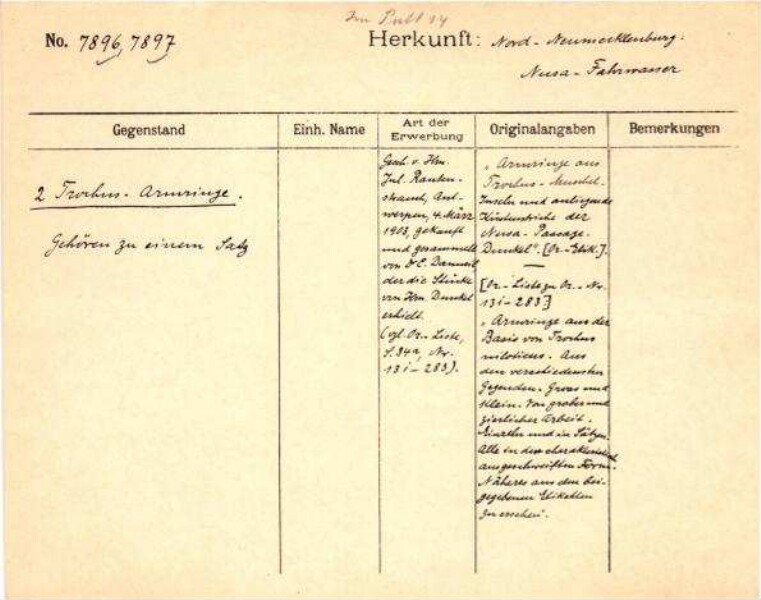 Im Pult 14
No. 7896, 7897
Herkunft: Nord-Neumecklenburg:
Nusa-Fahrwasser
Gegenstand
Einh. Name
Art der
Erwerbung
Originalangaben
Bemerkungen
2 Trochus-Armringe.
Gehören zu einem Satz
Gesch. v. Hrn.
Jul. Rauten-
strauch, Ant-
werpen, 4. März
1903, gekauft
und gesammelt
von Dr E. Danneil,
der die Stücke
von Hrn. Dunkel
erhielt.
(vgl. Or.-Liste,
S. 34a, Nr.
13i-283).
„Armringe aus
Trochus-Muschel.
Inseln und anliegende
Küstenstriche der
Nusa-Passage.
Dunkel". [Or-Etik.].
[Or-Liste zu Or.-Nr.
13i-283]
„Armringe aus der
Basis von Trochus
niloticus. Aus
den verschiedensten
Gegenden. Gross und
klein. Von grober und
zierlicher Arbeit.
Einzeln und in Sätzen.
Alle in der charakteristisch
ausgeschweiften Form.
Näheres aus den bei-
gegebenen Etiketten
zu ersehen".